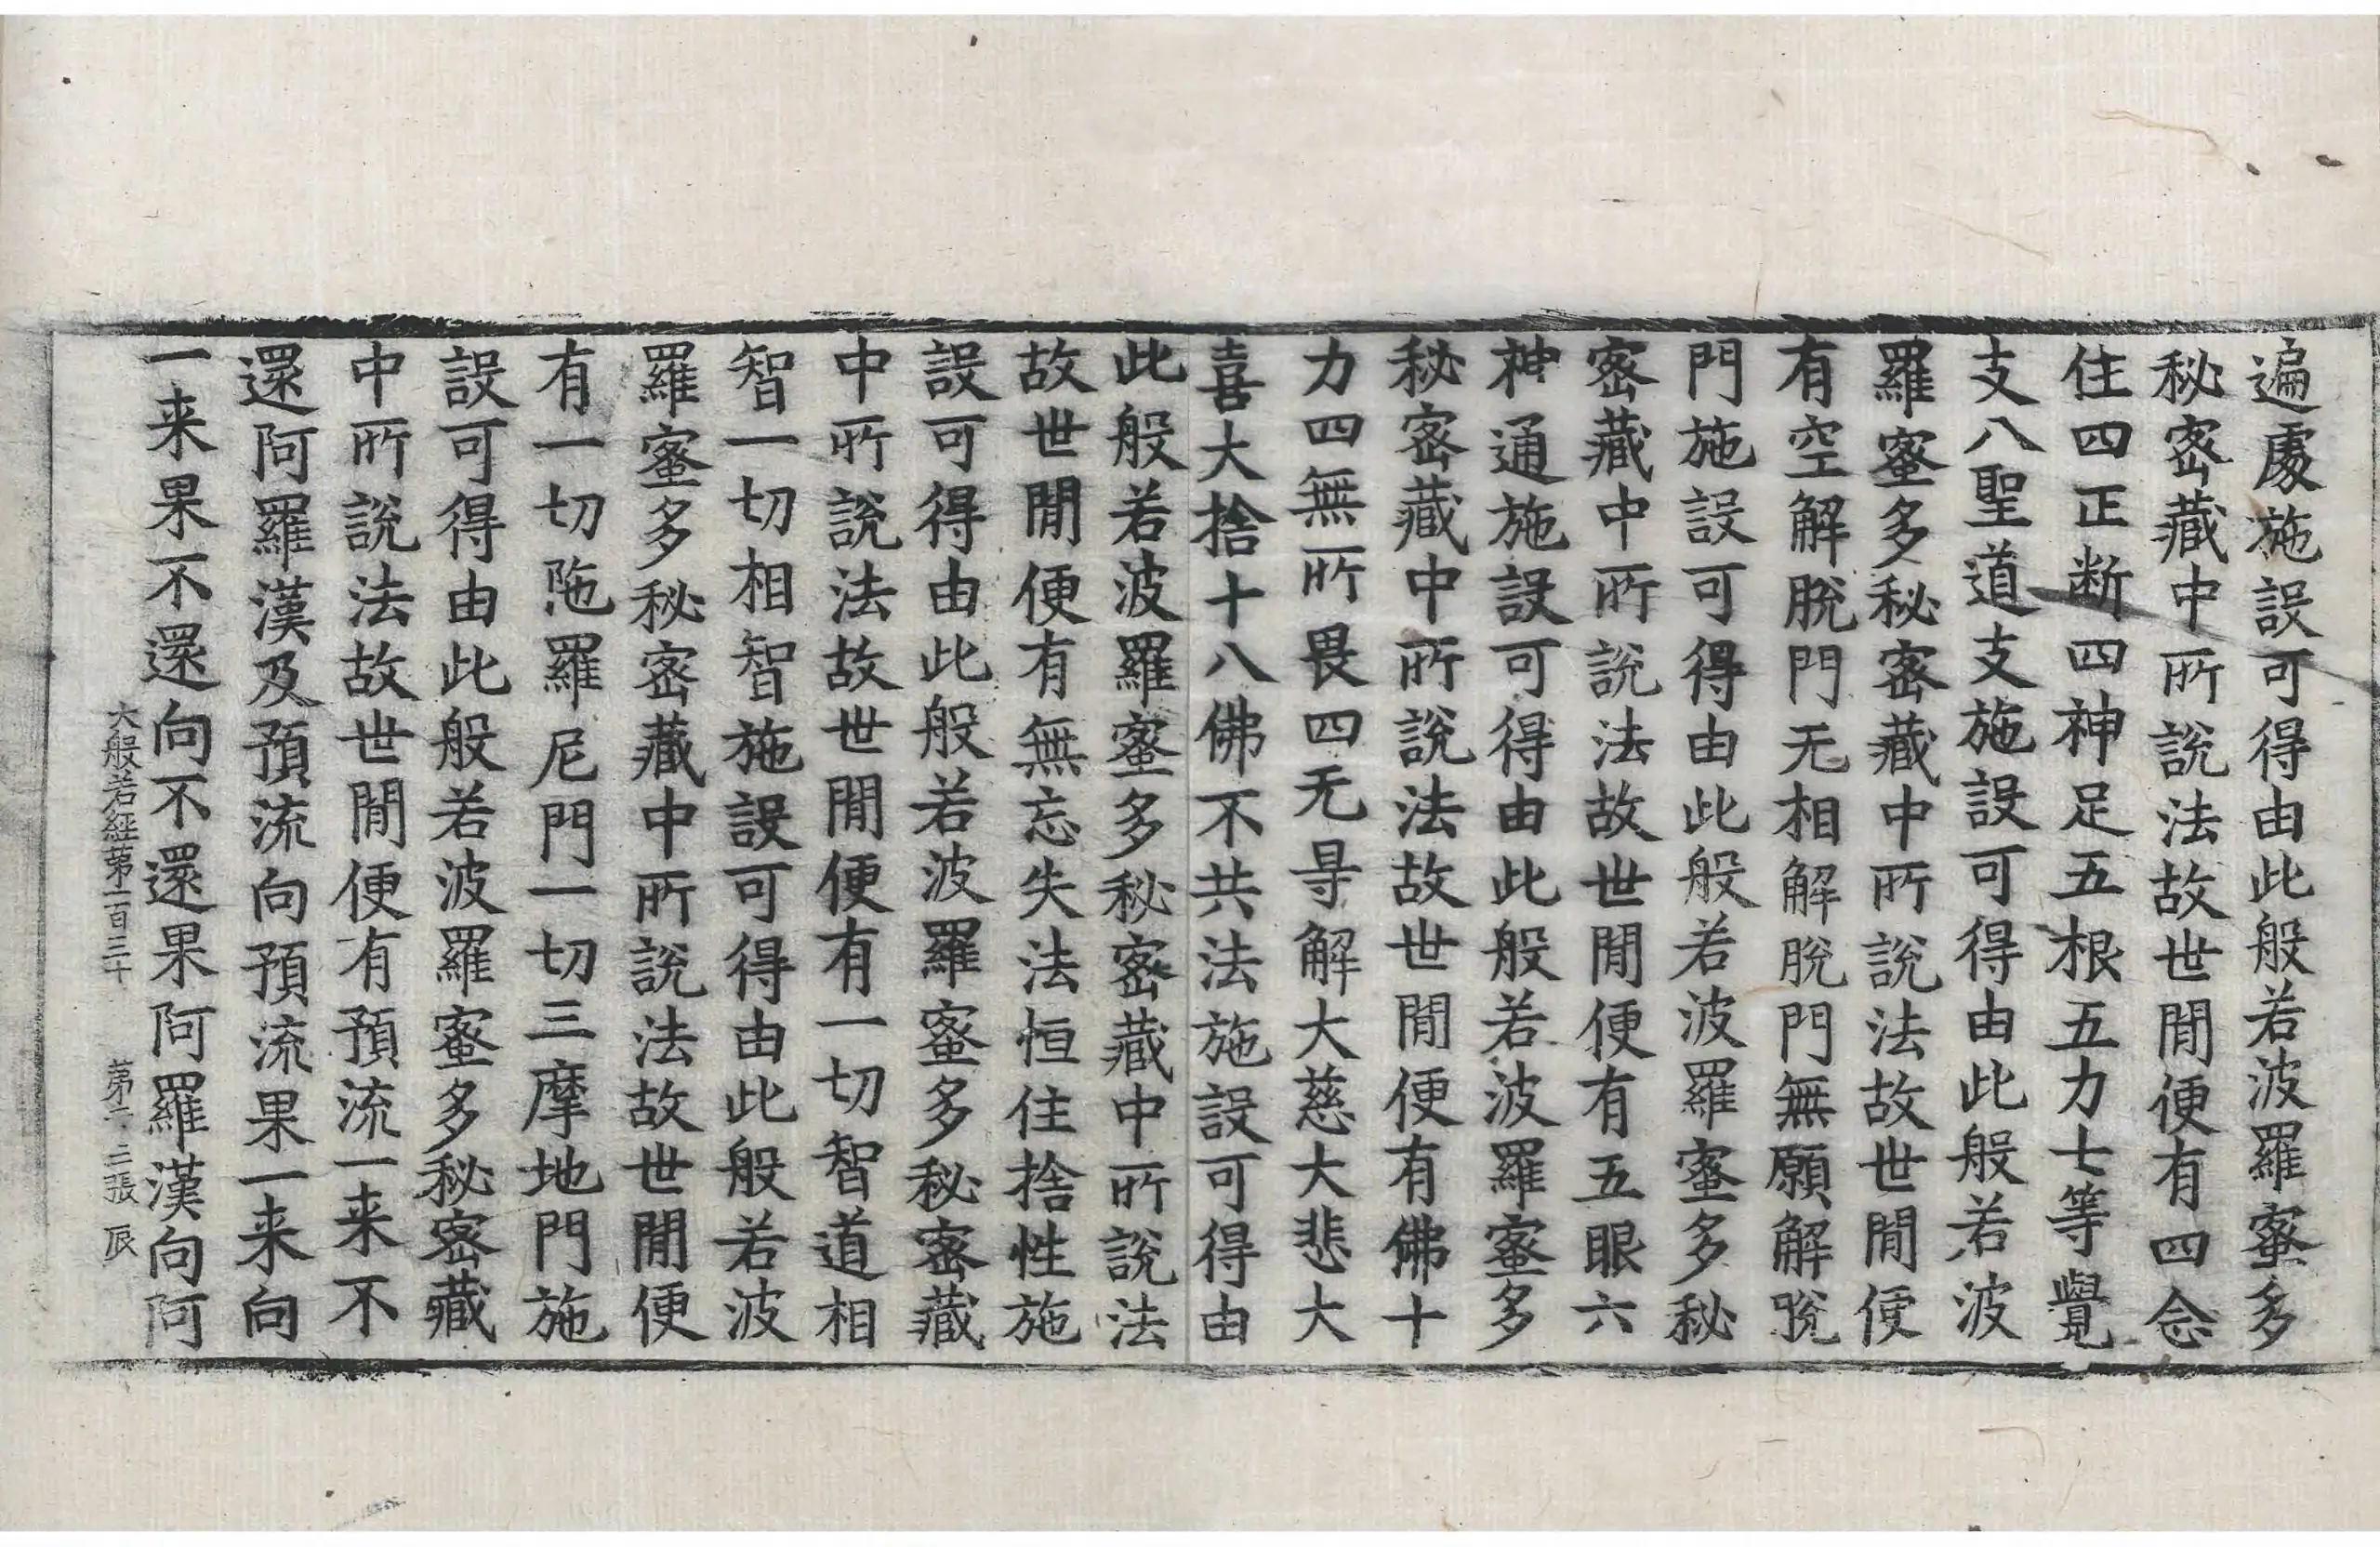 遍處施設可得由此般若波羅蜜多
秘密藏中所說法故世間便有四念
住四正断四神足五根五力七等覺
支八聖道支施設可得由此般若波
羅蜜多秘密藏中所說法故世間便
有空解脫門无相解脫門無願解脫
門施設可得由此般若波羅蜜多秘
密藏中所說法故世間便有五眼六
神通施設可得由此般若波羅蜜多
秘密藏中所說法故世間便有佛十
力四無所畏四无㝵解大慈大悲大
喜大捨十八佛不共法施設可得由
此般若波羅蜜多秘密藏中所說法
故世間便有無忘失法恒住捨性施
設可得由此般若波羅蜜多秘密藏
中所說法故世間便有一切智道相
智一切相智施設可得由此般若波
羅蜜多秘密藏中所說法故世間便
有一切陁羅尼門一切三摩地門施
設可得由此般若波羅蜜多秘密藏
中所說法故世間便有預流一来不
還阿羅漢及預流向預流果一来向
一来果不還向不還果阿羅漢向阿
大般若經第一百三十 第二十三張 辰